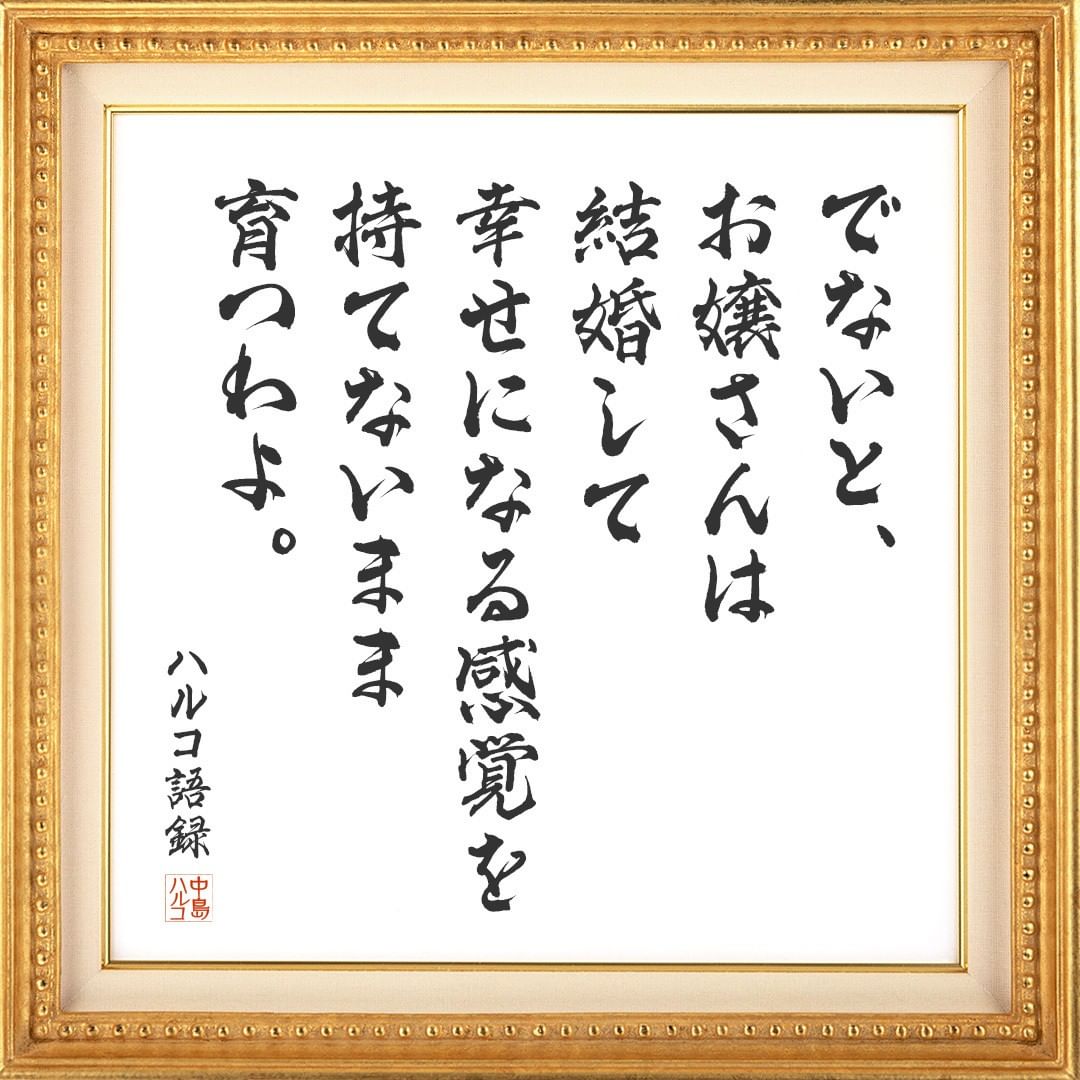 でないと、
お嬢さんは
結婚して
幸せになる感覚を
持てないまま
育つわよ。
ハルコ語録
中島
ハルコ